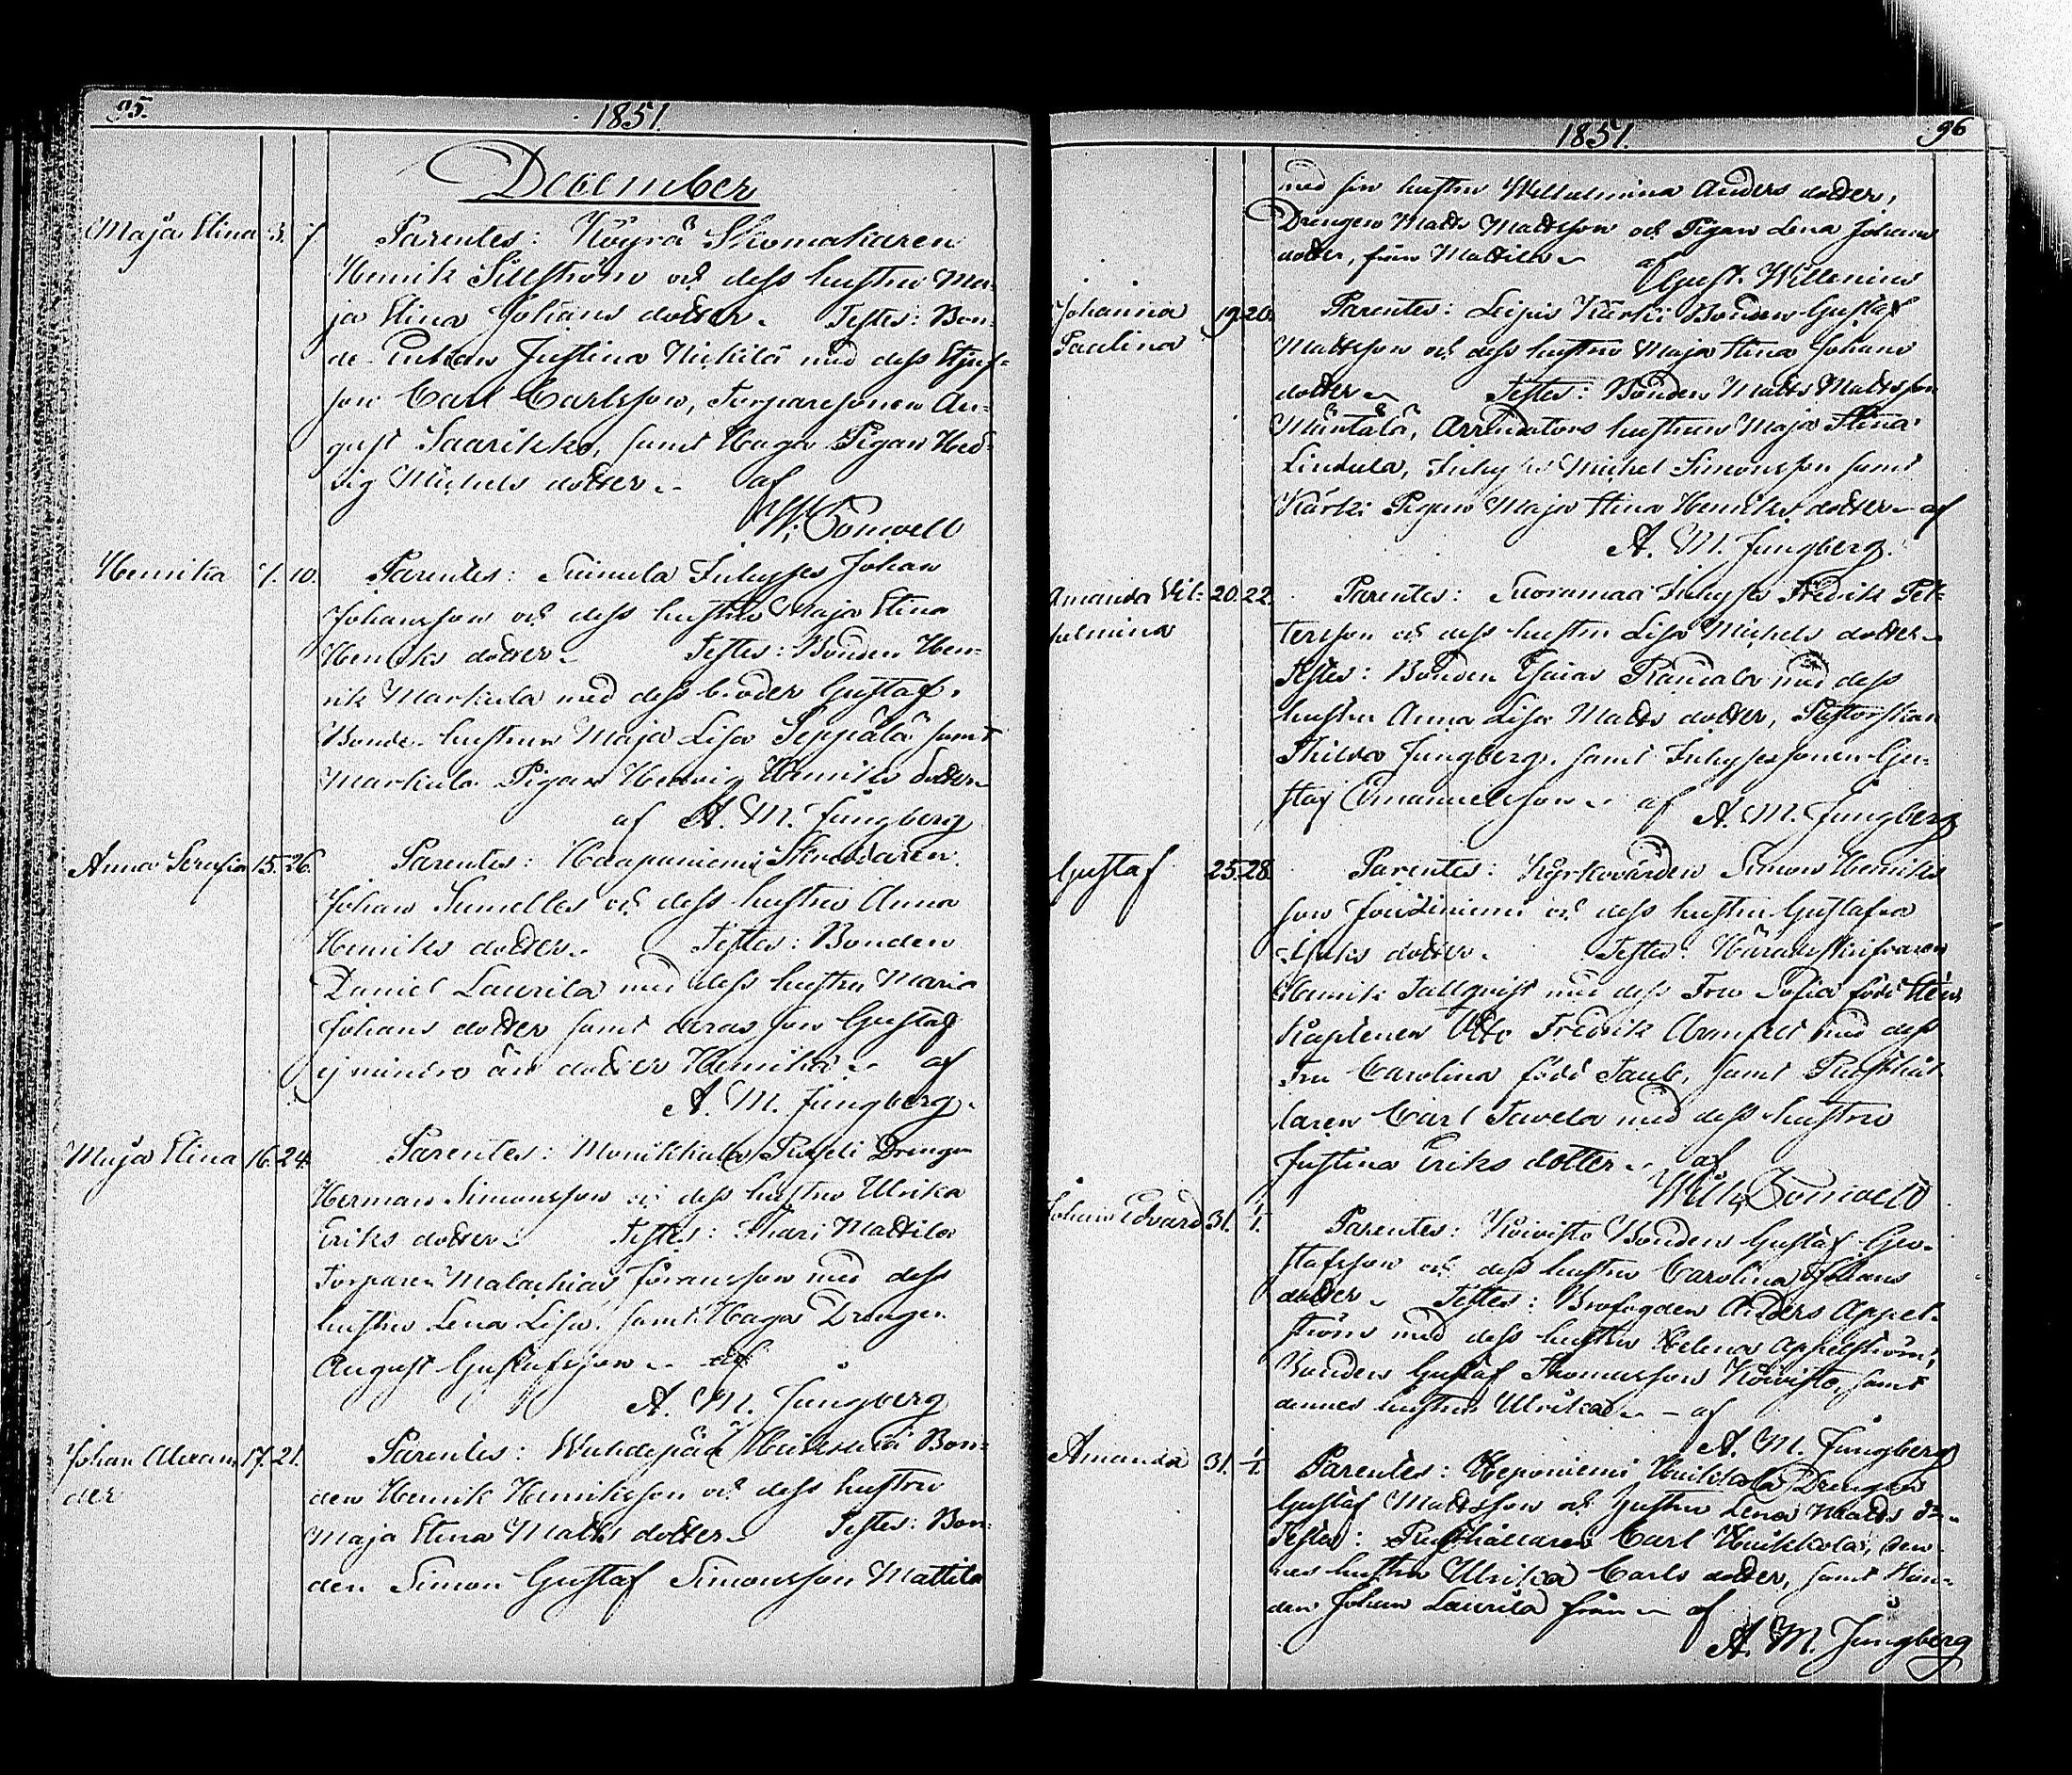 95.
1851.
December
Maja Stina 3. 7 Parentes: Köyrä Skomakaren
Henrik Sillström och dess hustru Ma-
ja Stina Johans dotter. Testes: Bon-
de Enkan Justina Nickilä med dess Styf-
son Carl Carlsson, Torparesonen Au-
gust Saarikko, samt Haga Pigan Hed-
vig Michels dotter. af
W. Bonwell
Henrika 7. 10. Parentes: Inhyses Johan
Johansson och dess hustru Maja Stina
Henriks dotter. Testes: Bonden Hen-
rik Markula med dess broder Gustaf,
Bonde-hustrun Maja Lisa Seppälä samt
Markula Pigan Hedvig Henriks dotter
af A. M. Jungberg
Anna Serafia 15. 26. Parentes: Haapaniemi Skräddaren
Johan Sumelles och dess hustru Anna
Henriks dotter. Testes: Bonden
Daniel Laurila med dess hustru Maria
Johans dotter samt deras son Gustaf
ej mindre än dotter Henrika. af
A. M. Jungberg.
Maja Stina 16. 24. Parentes: Monikkala Drengen
Herman Simonsson och dess hustru Ulrika
Eriks dotter. Testes: Mattila
Torparen Malachias Göransson med dess
hustru Lena Lisa, samt Haga Drengen
August Gustafsson. af
A. M. Jungberg
Johan Alexan- 17. 21. Parentes: Bon-
der
den Henrik Henriksson och dess hustru
Maja Stina Matts dotter. Testes: Bon-
den Simon Gustaf Simonsson Mattila
1851.
96
med sin hustru Wilhelmina Anders dotter,
Drengen Matts Mattsson och Pigan Lena Johans
dotter, från Mattila. af
Gust. Willenius
Johanna 19. 20. Parentes: Leipis Kärki Bonden Gustaf
Paulina
Mattsson och dess hustru Maja Stina Johans
dotter. Testes: Bonden Matts Mattsson
Mäntälä, Arrendators hustrun Maja Stina
Lindula, Inhyses Michel Simonsson samt
Kärki Pigan Maja Stina Henriks dotter. af
A. M. Jungberg.
Amanda Vil- 20. 22. Parentes: Suoramaa Inhyses Fredrik Pet-
helmina
tersson och dess hustru Lisa Michels dotter.
Testes: Bonden Esaias med dess
hustru Anna Lisa Matts dotter, Pastorskan
Thilda Jungberg, samt Inhysessonen Gu-
staf Emanuelsson. af A. M. Jungberg
Gustaf 25. 28. Parentes: Kyrkovärden Simon Henriks
son och dess hustru Gustafva
Isaks dotter. Testes: Häradsskrifvaren
Henrik Tallqvist med dess Fru Sofia född Hëis
Kaptenen Otto Fredrik Armfelt med dess
Fru Carolina född Taube, samt Rusthål-
laren Carl Tavela med dess hustru
Justina Eriks dotter. af
Wilh. Bonwell
Johan Edvard 31. 1/1. Parentes: Koivisto Bonden Gustaf Gu-
stafsson och dess hustru Carolina Johans
dotter. Testes: Brofogden Anders Appel-
ström med dess hustru Helena Appelström,
Bonden Gustaf Thomasson Koivisto, samt
dennes hustru Ulrika. af
A. M. Jungberg
Amanda 31. 1/1. Parentes: Heponiemi Huikkola Drengen
Gustaf Mattsson och hustru Lena Matts dr.
Testes: Rusthållaren Carl Huikkola, den-
nes hustru Ulrika Carls dotter, samt Bon-
den Johan Laurila från. af
A. M. Jungberg